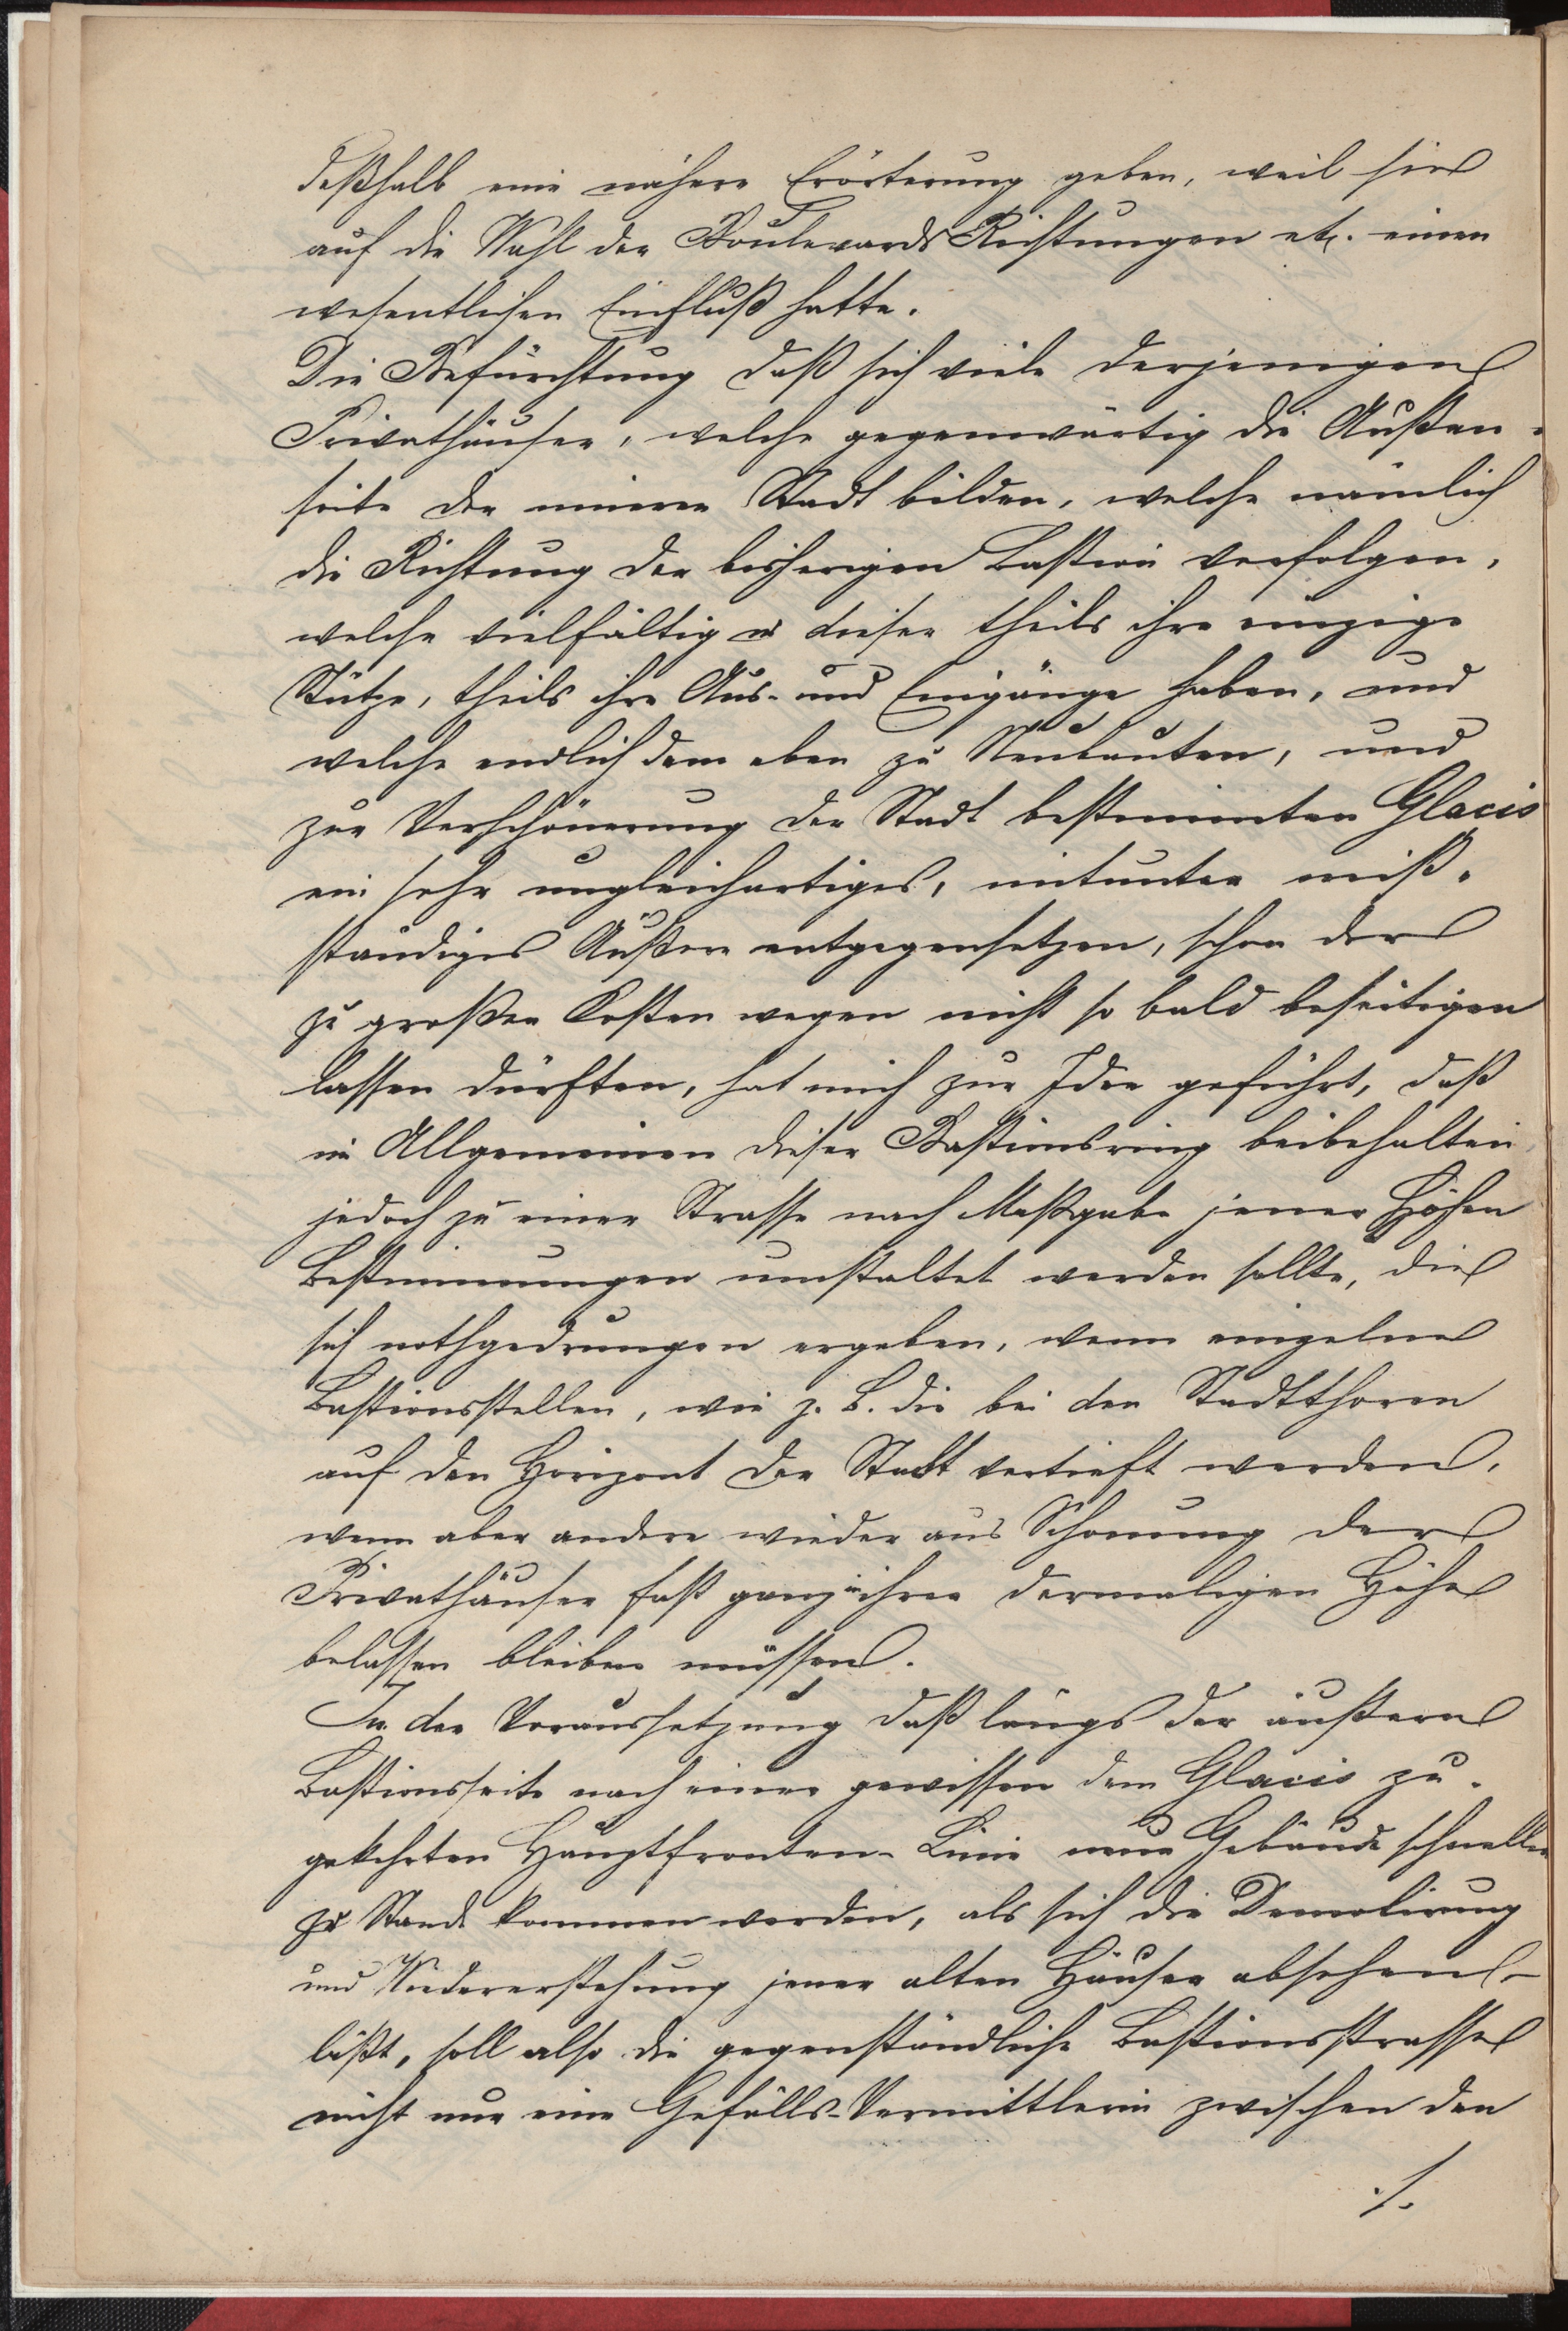 deßhalb eine nähere Erörterung geben, weil sie
auf die Wahl der Boulevards Richtungen etc. einen
wesentlichen Einfluß hatte.
Die Befürchtung daß sich viele derjenigen
Privathäuser, welche gegenwärtig die Außen-
seite der inneren Stadt bilden, welche nämlich
die Richtung der bisherigen Bastion verfolgen,
welche vielfältig in dieser theils ihre einzige
Stütze, theils ihre Aus- und Eingänge haben, und
welche endlich dem eben zu Neubauten, und
zur Verschönerung der Stadt bestimmten Glacis
ein sehr ungleichartiges, mitunter miß-
ständiges Äußere entgegensetzen, schon der
zu großen Kosten wegen nicht so bald beseitigen
lassen dürften, hat mich zur Idee geführt, daß
im Allgemeinen dieser Bastionsring beibehalten,
jedoch zu einer Strasse nach Maßgabe jener Höhen
Bestimmungen umstaltet werden sollte, die
sich nothgedrungen ergeben, wenn einzelne
Bastionsstellen, wie z. B. die bei den Stadtthoren
auf den Horizont der Stadt vertieft werden,
wenn aber andere wieder aus Schonung der
Privathäuser fast ganz in ihrer dermaligen Höhe
belassen bleiben müssen.
In der Voraussetzung daß längs der äußern
Bastionsseite nach einer gewissen dem Glacis zu-
gekehrten Hauptfronten-Linie neue Gebäude schneller
zu Stande kommen werden, als sich die Demolirung
und Wiedererstehung jener alten Häuser absehen
läßt, soll also die gegenständliche Bastionsstrasse
nicht nur eine Gefälls-Vermittlerin zwischen den
./.